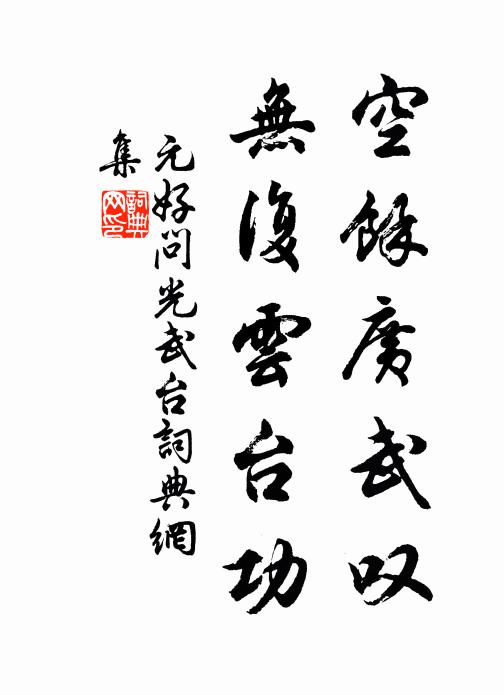 空餘廣武叹
無復雲台功
元好問光武台詞典網
集
詞典
网印